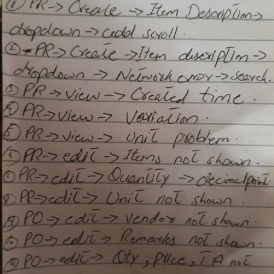 ① PR → Create → Item Description →
dropdown → add scroll.
② PR → Create → Item description →
dropdown → Network error → search.
③ PR → view → Created time.
④ PR → view → Variation.
⑤ PR → view → Unit problem.
PR → edit → Items not shown.
PR → edit → Quantity → decimal point.
⑧ PR → edit → Unit not shown.
⑨ PO → edit → Vendor not shown.
PO → edit → Remarks not shown.
PO → edit → Qty, price, T.A not